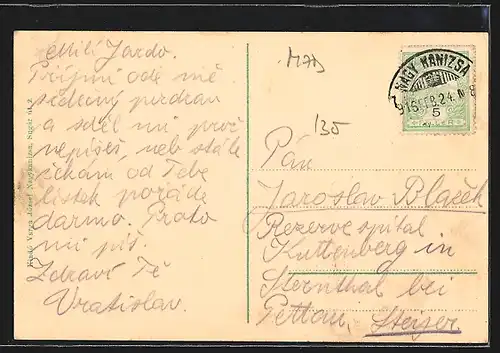 Milí Jardo.
Přijmi ode mě
srdečný pozdrav
a sděl mi proč
nepíšeš, neb stále
čekám od Tebe
lístek pořáde
darmo. Proto
mi piš.
Zdraví Tě
Vratislav.
Kiadó Varga József Nagykanizsa,
MAD
135
NAGY KANIZSA
916 FEB. 24. N 8
5
Pán
Jaroslav Blaček
Rezerve spital
Kuttenberg in
Sternthal bei
Pettau, Steijer